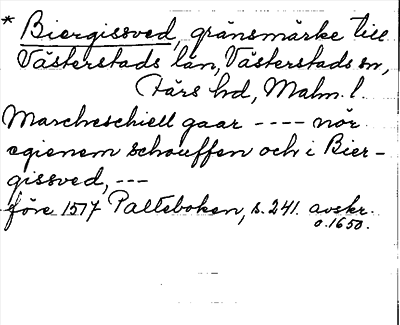 * Biergissved, gränsmärke till
Västerstads län, Västerstads sn,
Färs hd, Malm. l.
Marcheschiell gaar ---- nör
egienem schouffen och i Bier-
gissved, ---
före 1517 Palteboken, s. 241. avskr.
o. 1650.